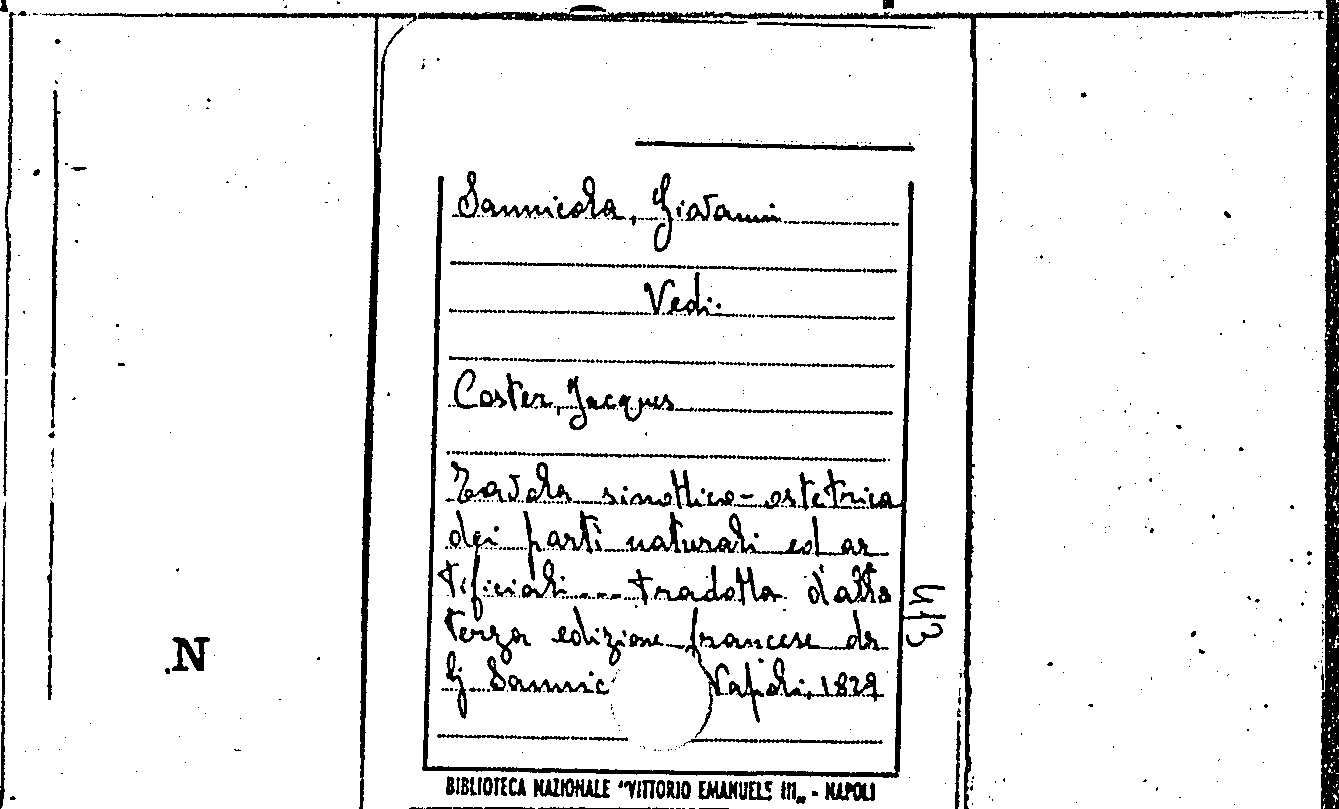 Sannicola, Giovanni
Vedi:
Coster, Jacques
Tavola sinottico-ostetrica
dei parti naturali ed ar
tificiali --- tradotta dalla
terza edizione francese da
G. Sannic Napoli, 1829
4/3
.N
BIBLIOTECA NAZIONALE "VITTORIO EMANUELE III„ - NAPOLI